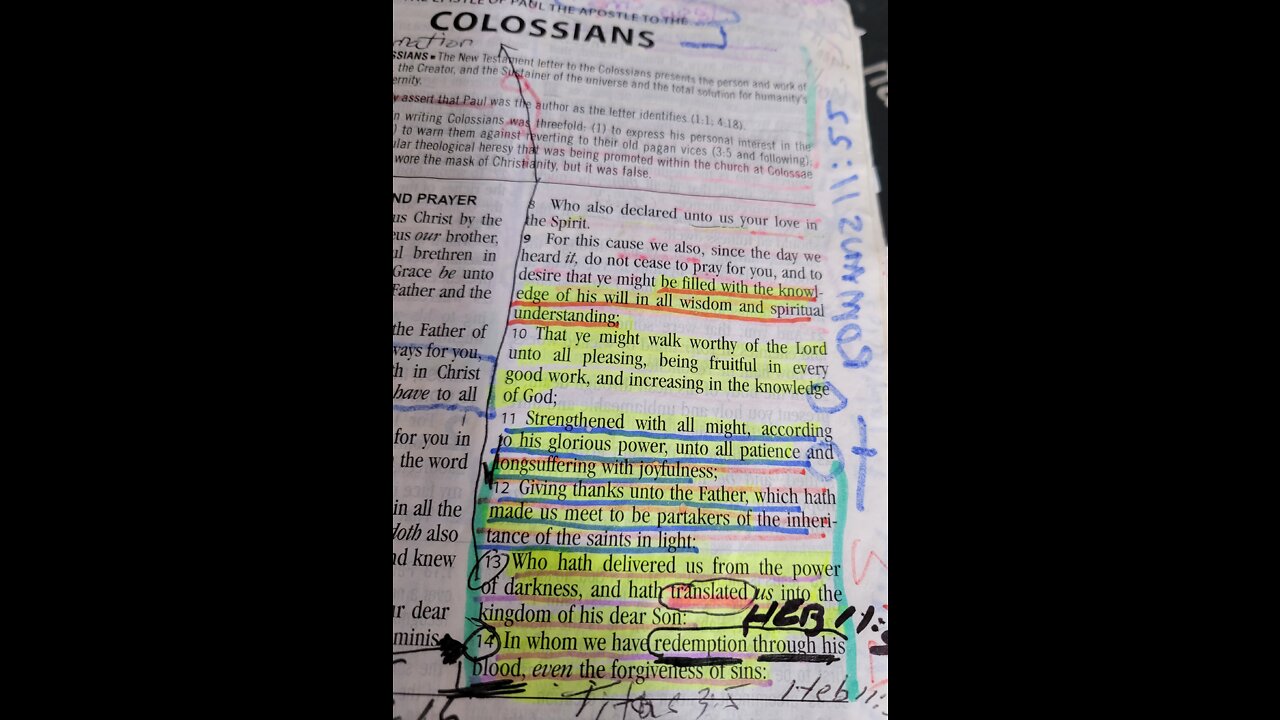 THE EPISTLE OF PAUL THE APOSTLE TO THE
COLOSSIANS
mation
SSIANS ▪ The New Testament letter to the Colossians presents the person and work of
the Creator, and the Sustainer of the universe and the total solution for humanity's
ernity.
y assert that Paul was the author as the letter identifies (1:1; 4:18).
n writing Colossians was threefold: (1) to express his personal interest in the
) to warn them against reverting to their old pagan vices (3:5 and following);
ular theological heresy that was being promoted within the church at Colossae
wore the mask of Christianity, but it was false.
ND PRAYER
us Christ by the
eus our brother,
ul brethren in
Grace be unto
Father and the
the Father of
ways for you,
h in Christ
have to all
for you in
the word
in all the
doth also
nd knew
ur dear
minis
8 Who also declared unto us your love in
the Spirit.
9 For this cause we also, since the day we
heard it, do not cease to pray for you, and to
desire that ye might be filled with the knowl-
edge of his will in all wisdom and spiritual
understanding;
10 That ye might walk worthy of the Lord
unto all pleasing, being fruitful in every
good work, and increasing in the knowledge
of God;
11 Strengthened with all might, according
to his glorious power, unto all patience and
longsuffering with joyfulness;
12 Giving thanks unto the Father, which hath
made us meet to be partakers of the inheri-
tance of the saints in light:
13 Who hath delivered us from the power
of darkness, and hath translated us into the
kingdom of his dear Son:
HEB 11:
14 In whom we have redemption through his
blood, even the forgiveness of sins:
Titus 3:5
Heb 11:5